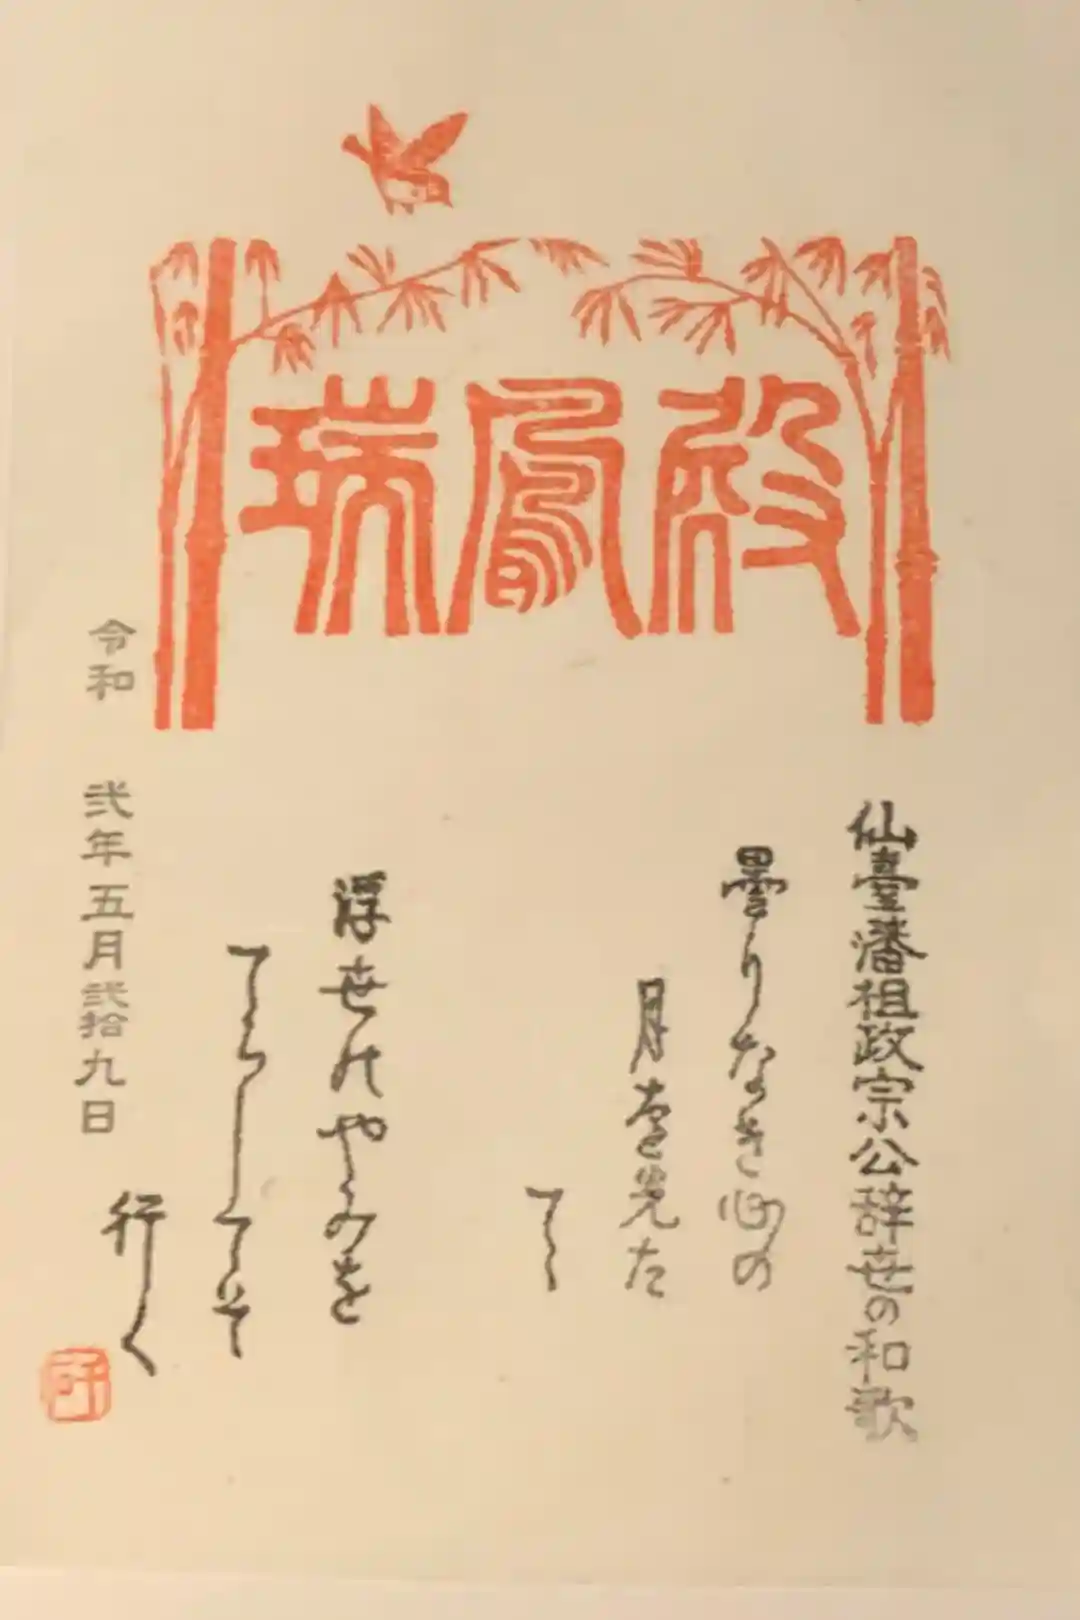 瑞鳳殿
仙臺藩祖政宗公辞世の和歌
曇りなき心の
月を先た
てゝ
浮世のやみを
てらしてそ
行く
令和 弐年五月弐拾九日